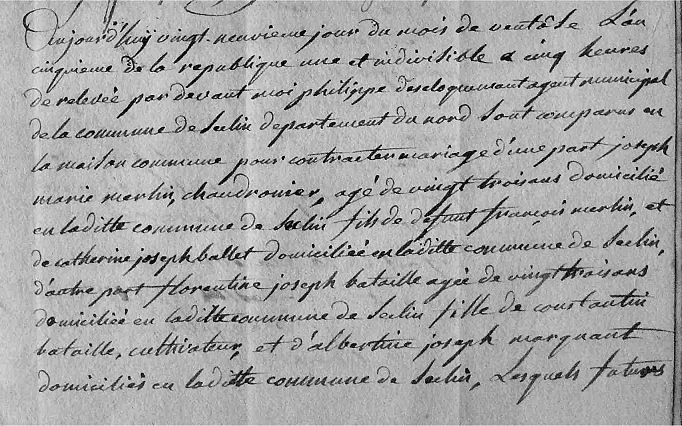 Aujourd'huy vingt-neuvieme jour du mois de ventôse L'an
cinquieme de la republique une et indivisible a cinq heures
de relevée par devant moi philippe descloquemant agent municipal
de la commune de Seclin departement du nord sont comparus en
la maison commune pour contracter mariage d'une part joseph
marie merlin, chaudronier, agé de vingt trois ans domicilié
en laditte commune de Seclin fils de defunt françois merlin, et
de catherine joseph ballet domiciliée en laditte commune de Seclin,
d'autre part florentine joseph bataille agée de vingt trois ans
domiciliée en laditte commune de Seclin fille de constantin
bataille, cultivateur, et d'albertine joseph marquant
domiciliés en laditte commune de Seclin, Lesquels futurs